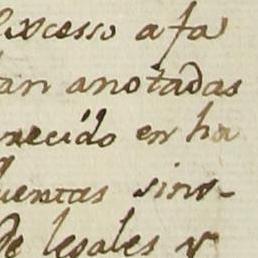 excesso a fa
an anotadas
recido en ha
uentas sino-
de legales y